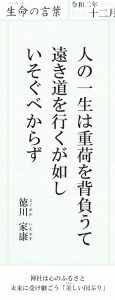 生命の言葉
令和二年
十二月
人の一生は重荷を背負うて
遠き道を行くが如し
いそぐべからず
徳川 家康
とくがわ いえやす
神社は心のふるさと
未来に受け継ごう「美しい国ぶり」